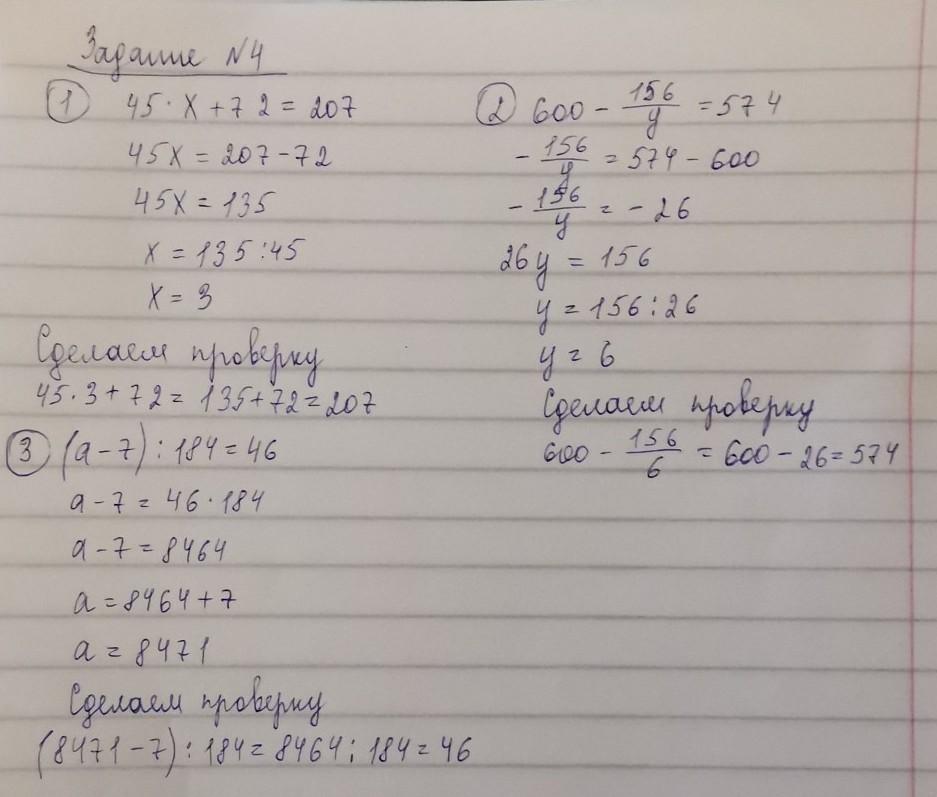 Задание N4
① 45 · x + 72 = 207
45x = 207 - 72
45x = 135
x = 135 : 45
x = 3
Сделаем проверку
45 · 3 + 72 = 135 + 72 = 207
② 600 - 156/y = 574
- 156/y = 574 - 600
- 156/y = - 26
26y = 156
y = 156 : 26
y = 6
Сделаем проверку
600 - 156/6 = 600 - 26 = 574
③ (a - 7) : 184 = 46
a - 7 = 46 · 184
a - 7 = 8464
a = 8464 + 7
a = 8471
Сделаем проверку
(8471 - 7) : 184 = 8464 : 184 = 46